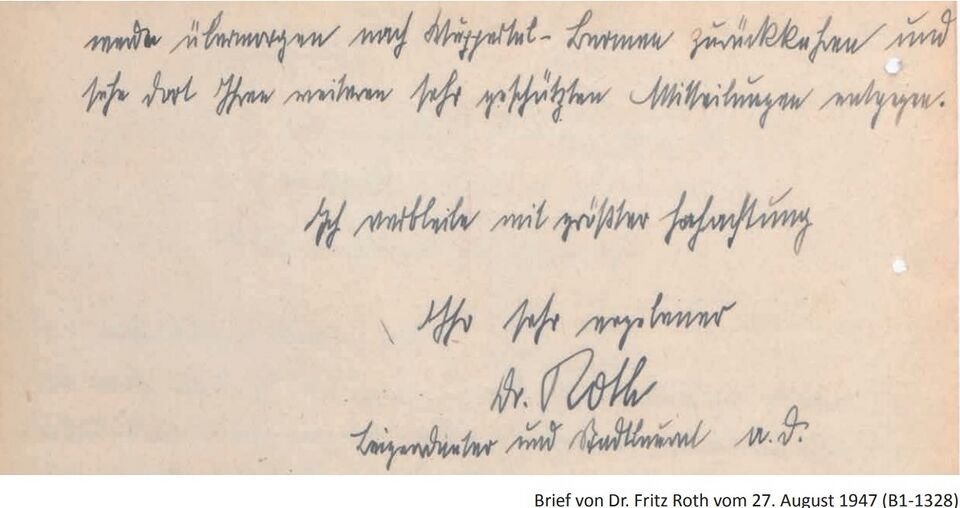 werde übermorgen nach Wuppertal-Barmen zurückkehren und
sehe dort Ihren weiteren sehr geschätzten Mitteilungen entgegen.
Ich verbleibe mit größter Hochachtung
Ihr sehr ergebener
Dr. Roth
Beigeordneter und Stadtbaurat a.D.
Brief von Dr. Fritz Roth vom 27. August 1947 (B1-1328)